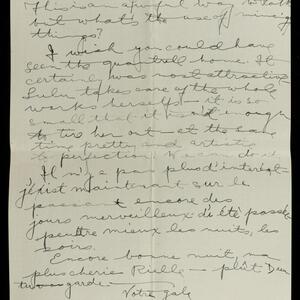 This is an awful way to talk
but what's the use of mincing
things?
I wish you could have
seen the quantrell home. It
certainly was most attractive
Lulu takes care of the whole
works herself — it is so
small that it isn't enough
to tire her out — at the same
time pretty and artistic
to perfection.
Il n'y a pas plus d'intérêt
maintenant sur le
passant encore des
jours merveilleux d'été passé
peut être mieux les nuits, les
soirs.
Encore bonne nuit, ma
plus cherie Rielle — plût Dieu
garde
Votre